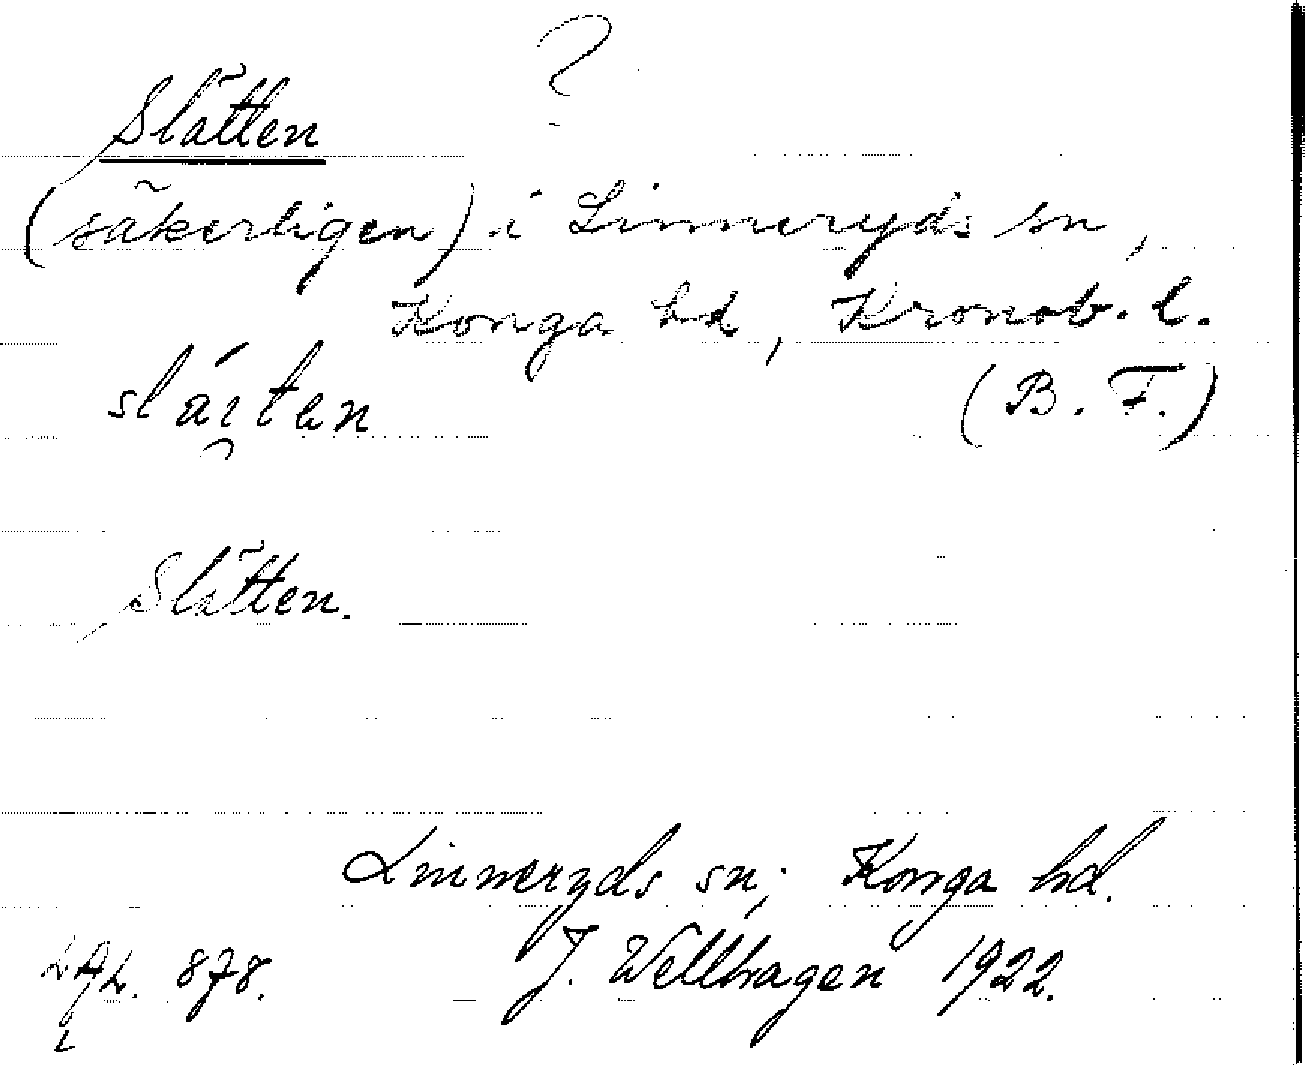 ?
Slätten
(säkerligen) i Linneryds sn,
Konga hd, Kronob. l.
(B. F.)
Slätten.
Linneryds sn; Konga hd.
878. J. Wellhagen 1922.